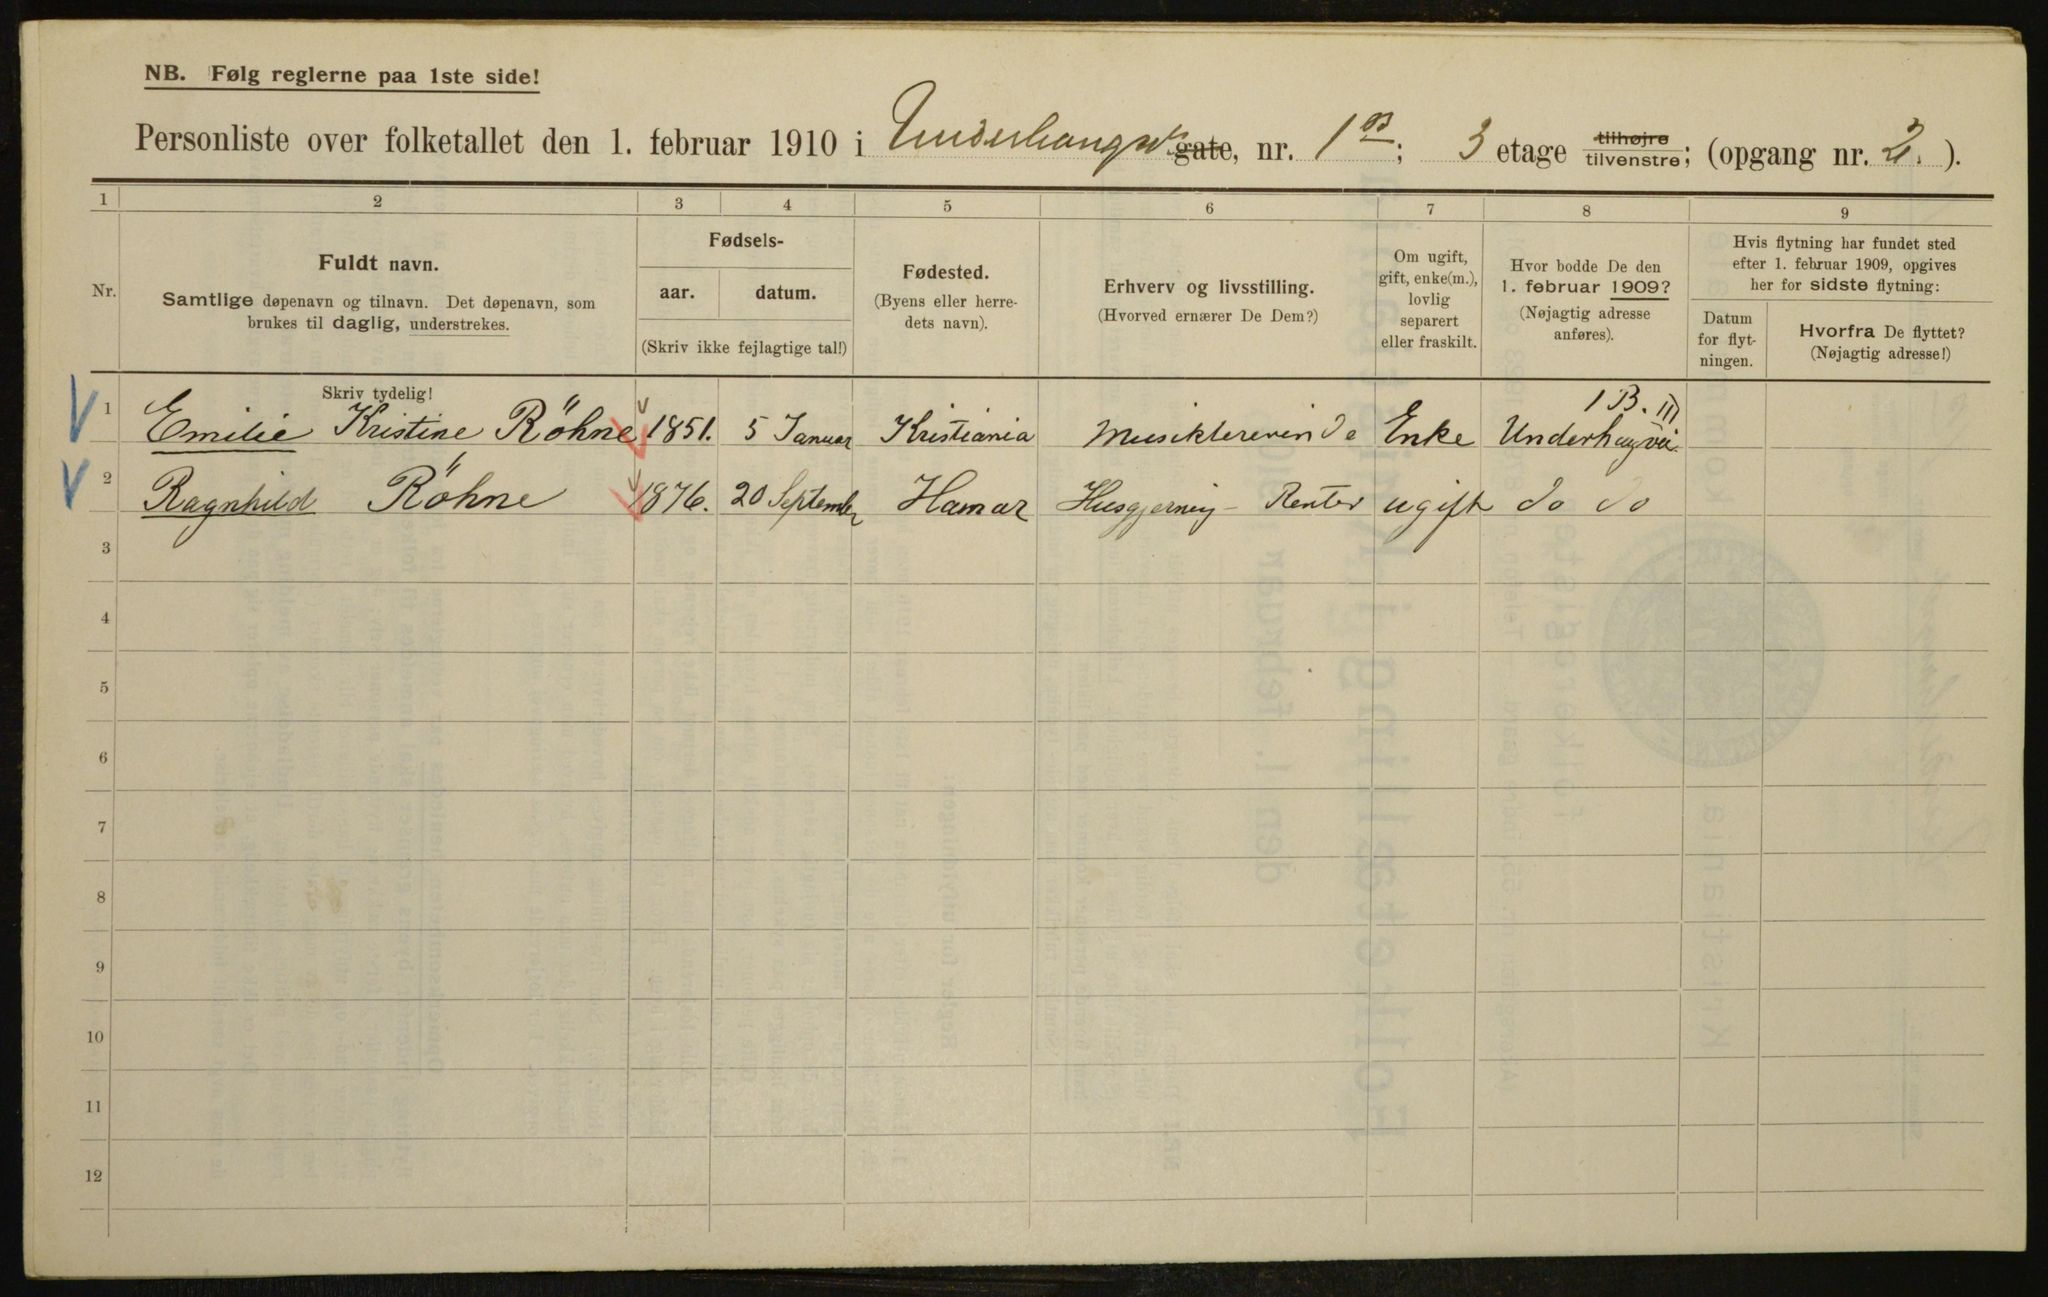 NB. Følg reglerne paa 1ste side!
Personliste over folketallet den 1. februar 1910 i Underhaugsv. gate, nr. 1B; 3 etage tilhøjre tilvenstre; (opgang nr. 2.).
1 2 3 4 5 6 7 8 9
Nr.
Fuldt navn.
Samtlige døpenavn og tilnavn. Det døpenavn, som
brukes til daglig, understrekes.
Skriv tydelig!
Fødsels-
aar. datum.
(Skriv ikke fejlagtige tal!)
Fødested.
(Byens eller herre-
dets navn).
Erhverv og livsstilling.
(Hvorved ernærer De Dem?)
Om ugift,
gift, enke(m.),
lovlig
separert
eller fraskilt.
Hvor bodde De den
1. februar 1909?
(Nøjagtig adresse
anføres).
Hvis flytning har fundet sted
efter 1. februar 1909, opgives
her for sidste flytning:
Datum
for flyt-
ningen.
Hvorfra De flyttet?
(Nøjagtig adresse!)
1 Emilie Kristine Röhne 1851. 5 Januar Kristiania Musiklererinde Enke 1 B. III Underhaugsvei.
2 Ragnhild Röhne 1876. 20 September Hamar Husgjerning - Renter ugift do do
3
4
5
6
7
8
9
10
11
12